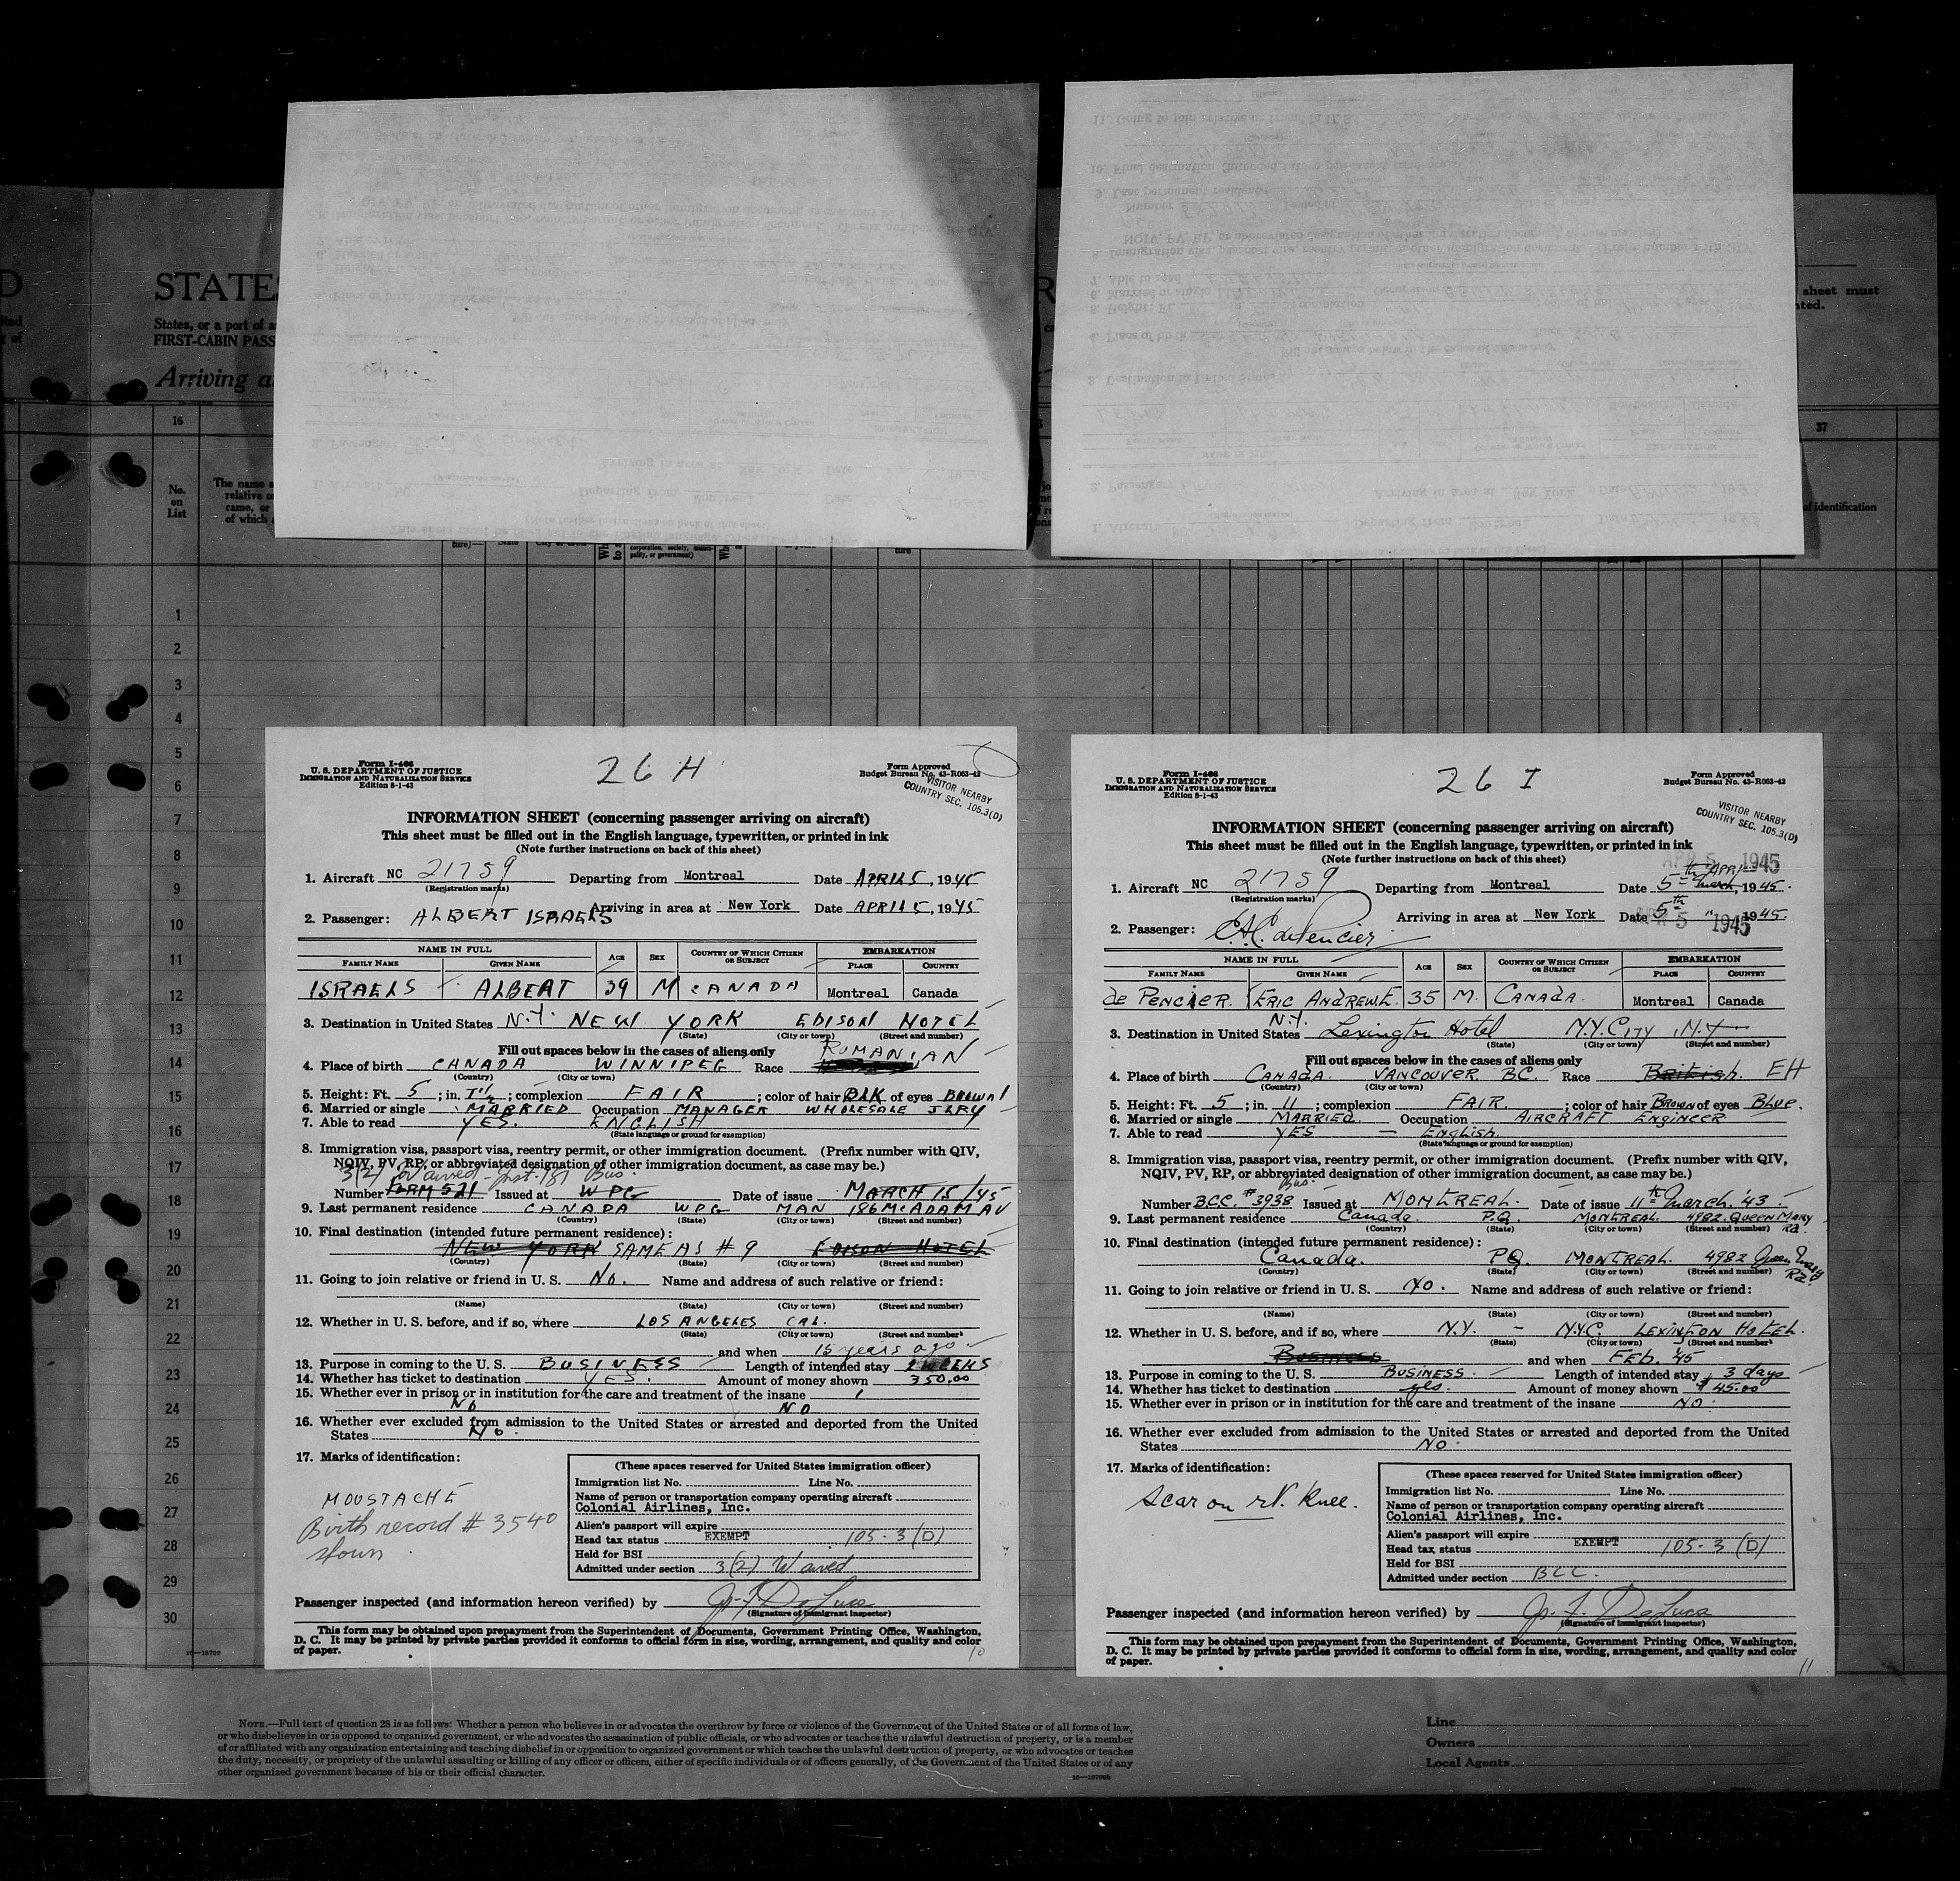 STATES
States, or a port of a
FIRST-CABIN PASS
Arriving a
sheet must
nted.
16
37
No.
on
List
The name a
relative o
came, or
of which
of identification
ture)—
State
City or town
corporation, society, munici-
pality, or government)
ture
1
2
3
4
5
6
7
8
9
10
11
12
13
14
15
16
17
18
19
20
21
22
23
24
25
26
27
28
29
30
Form I-466
U. S. DEPARTMENT OF JUSTICE
IMMIGRATION AND NATURALIZATION SERVICE
Edition 8-1-43
26 H
Form Approved
Budget Bureau No. 43-R063-42
VISITOR NEARBY
COUNTRY SEC. 105.3(D)
INFORMATION SHEET (concerning passenger arriving on aircraft)
This sheet must be filled out in the English language, typewritten, or printed in ink
(Note further instructions on back of this sheet)
1. Aircraft NC 21759 Departing from Montreal Date APRIL 5, 1945
(Registration marks)
Arriving in area at New York Date APRIL 5, 1945
2. Passenger: ALBERT ISRAELS
NAME IN FULL AGE SEX COUNTRY OF WHICH CITIZEN OR SUBJECT EMBARKATION
FAMILY NAME GIVEN NAME PLACE COUNTRY
ISRAELS ALBERT 39 M CANADA Montreal Canada
3. Destination in United States N.Y. NEW YORK EDISON HOTEL
(State) (City or town) (Street and number)
Fill out spaces below in the cases of aliens only
4. Place of birth CANADA WINNIPEG Race ROMANIAN
(Country) (City or town)
5. Height: Ft. 5; in. 7½; complexion FAIR; color of hair BLK of eyes BROWN
6. Married or single MARRIED Occupation MANAGER WHOLESALE JLRY
7. Able to read YES. ENGLISH
(State language or ground for exemption)
8. Immigration visa, passport visa, reentry permit, or other immigration document. (Prefix number with QIV,
NQIV, PV, RP, or abbreviated designation of other immigration document, as case may be.)
3(2) Waived - Inst. 187 Bus.
Number FORM 521 Issued at WPG Date of issue MARCH 15/45
9. Last permanent residence CANADA WPG MAN 186 McADAM AV
(Country) (State) (City or town) (Street and number)
10. Final destination (intended future permanent residence):
NEW YORK SAME AS # 9 EDISON HOTEL
(Country) (State) (City or town) (Street and number)
11. Going to join relative or friend in U. S. No. Name and address of such relative or friend:
(Name) (State) (City or town) (Street and number)
12. Whether in U. S. before, and if so, where LOS ANGELES CAL.
(State) (City or town) (Street and number)
and when 15 years ago
13. Purpose in coming to the U. S. BUSINESS Length of intended stay 2 WEEKS
14. Whether has ticket to destination YES. Amount of money shown 350.00
15. Whether ever in prison or in institution for the care and treatment of the insane
NO NO
16. Whether ever excluded from admission to the United States or arrested and deported from the United
States No.
17. Marks of identification:
MOUSTACHE
Birth record # 3540
shown
(These spaces reserved for United States immigration officer)
Immigration list No. Line No.
Name of person or transportation company operating aircraft
Colonial Airlines, Inc.
Alien's passport will expire
Head tax status EXEMPT 105-3 (D)
Held for BSI
Admitted under section 3(2) Waived
Passenger inspected (and information hereon verified) by Jr. F. DeLuca
(Signature of immigrant inspector)
This form may be obtained upon prepayment from the Superintendent of Documents, Government Printing Office, Washington,
D. C. It may be printed by private parties provided it conforms to official form in size, wording, arrangement, and quality and color
of paper.
10
Form I-466
U. S. DEPARTMENT OF JUSTICE
IMMIGRATION AND NATURALIZATION SERVICE
Edition 8-1-43
26 I
Form Approved
Budget Bureau No. 43-R063-42
VISITOR NEARBY
COUNTRY SEC. 105.3(D)
INFORMATION SHEET (concerning passenger arriving on aircraft)
This sheet must be filled out in the English language, typewritten, or printed in ink
(Note further instructions on back of this sheet)
APR 5 1945
1. Aircraft NC 21759 Departing from Montreal Date 5th March APR, 1945.
(Registration marks)
Arriving in area at New York Date 5th " 1945.
APR 5 1945
2. Passenger: E.A.C. dePencier
NAME IN FULL AGE SEX COUNTRY OF WHICH CITIZEN OR SUBJECT EMBARKATION
FAMILY NAME GIVEN NAME PLACE COUNTRY
de PENCIER. ERIC ANDREW.E. 35 M. CANADA. Montreal Canada
3. Destination in United States N.Y. Lexington Hotel N.Y.CITY N.Y
(State) (City or town) (Street and number)
Fill out spaces below in the cases of aliens only
4. Place of birth CANADA. VANCOUVER. BC. Race British. EH
(Country) (City or town)
5. Height: Ft. 5; in. 11; complexion FAIR.; color of hair BROWN of eyes BLUE.
6. Married or single MARRIED. Occupation AIRCRAFT ENGINEER
7. Able to read YES — ENGLISH.
(State language or ground for exemption)
8. Immigration visa, passport visa, reentry permit, or other immigration document. (Prefix number with QIV,
NQIV, PV, RP, or abbreviated designation of other immigration document, as case may be.)
Bus.
Number BCC. #3938 Issued at MONTREAL. Date of issue 11th March. '43.
9. Last permanent residence Canada. P.Q. MONTREAL. 4982. QUEEN MARY Rd.
(Country) (State) (City or town) (Street and number)
10. Final destination (intended future permanent residence):
Canada. PQ. MONTREAL. 4982 Queen Mary Rd.
(Country) (State) (City or town) (Street and number)
11. Going to join relative or friend in U. S. NO. Name and address of such relative or friend:
(Name) (State) (City or town) (Street and number)
12. Whether in U. S. before, and if so, where N.Y. - N.Y.C. LEXINGTON HOTEL.
(State) (City or town) (Street and number)
BUSINESS and when FEB. '45
13. Purpose in coming to the U. S. BUSINESS. Length of intended stay 3 days
14. Whether has ticket to destination yes. Amount of money shown $45.00
15. Whether ever in prison or in institution for the care and treatment of the insane NO.
16. Whether ever excluded from admission to the United States or arrested and deported from the United
States NO.
17. Marks of identification:
Scar on rt. knee.
(These spaces reserved for United States immigration officer)
Immigration list No. Line No.
Name of person or transportation company operating aircraft
Colonial Airlines, Inc.
Alien's passport will expire
Head tax status EXEMPT 105-3 (D)
Held for BSI
Admitted under section BCC.
Passenger inspected (and information hereon verified) by Jr. F. DeLuca
(Signature of immigrant inspector)
This form may be obtained upon prepayment from the Superintendent of Documents, Government Printing Office, Washington,
D. C. It may be printed by private parties provided it conforms to official form in size, wording, arrangement, and quality and color
of paper.
11
16—18709
NOTE.—Full text of question 28 is as follows: Whether a person who believes in or advocates the overthrow by force or violence of the Government of the United States or of all forms of law,
or who disbelieves in or is opposed to organized government, or who advocates the assassination of public officials, or who advocates or teaches the unlawful destruction of property, or is a member
of or affiliated with any organization entertaining and teaching disbelief in or opposition to organized government or which teaches the unlawful destruction of property, or who advocates or teaches
the duty, necessity, or propriety of the unlawful assaulting or killing of any officer or officers, either of specific individuals or of officers generally, of the Government of the United States or of any
other organized government because of his or their official character.
16—18709b
Line
Owners
Local Agents